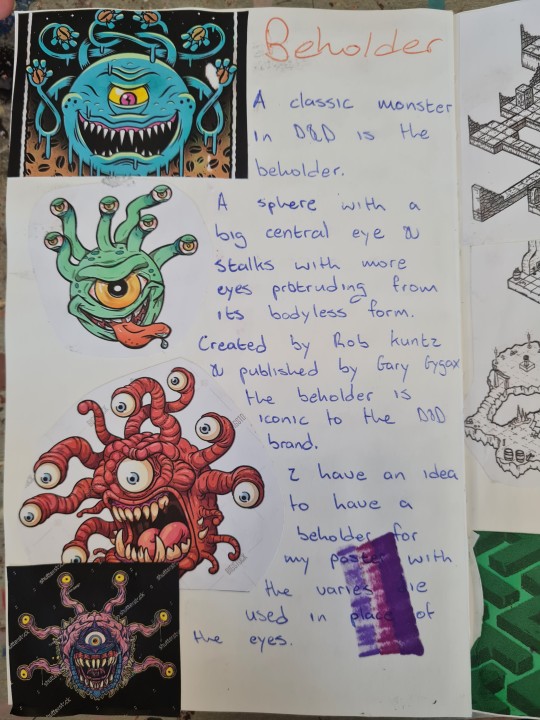 Beholder
A classic monster
in D&D is the
beholder.
A sphere with a
big central eye &
stalks with more
eyes protruding from
its bodyless form.
Created by Rob Kuntz
& published by Gary Gygax
the beholder is
iconic to the D&D
brand.
I have an idea
to have a
beholder for
my poster with
the varies
used in place of
the eyes.
shutterstock
shutterstock
shutterstock